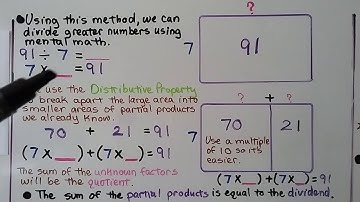 Using this method, we can
divide greater numbers using
mental math.
91 ÷ 7 = __
7 x __ = 91
use the Distributive Property
to break apart the large area into
smaller areas of partial products
we already know.
70 + 21 = 91
(7 x _) + (7 x _) = 91
The sum of the unknown factors
will be the quotient.
The sum of the partial products is equal to the dividend.
?
7
91
? + ?
7
70
21
Use a multiple
of 10 so its
easier.
(7 x _) + (7 x _) = 91